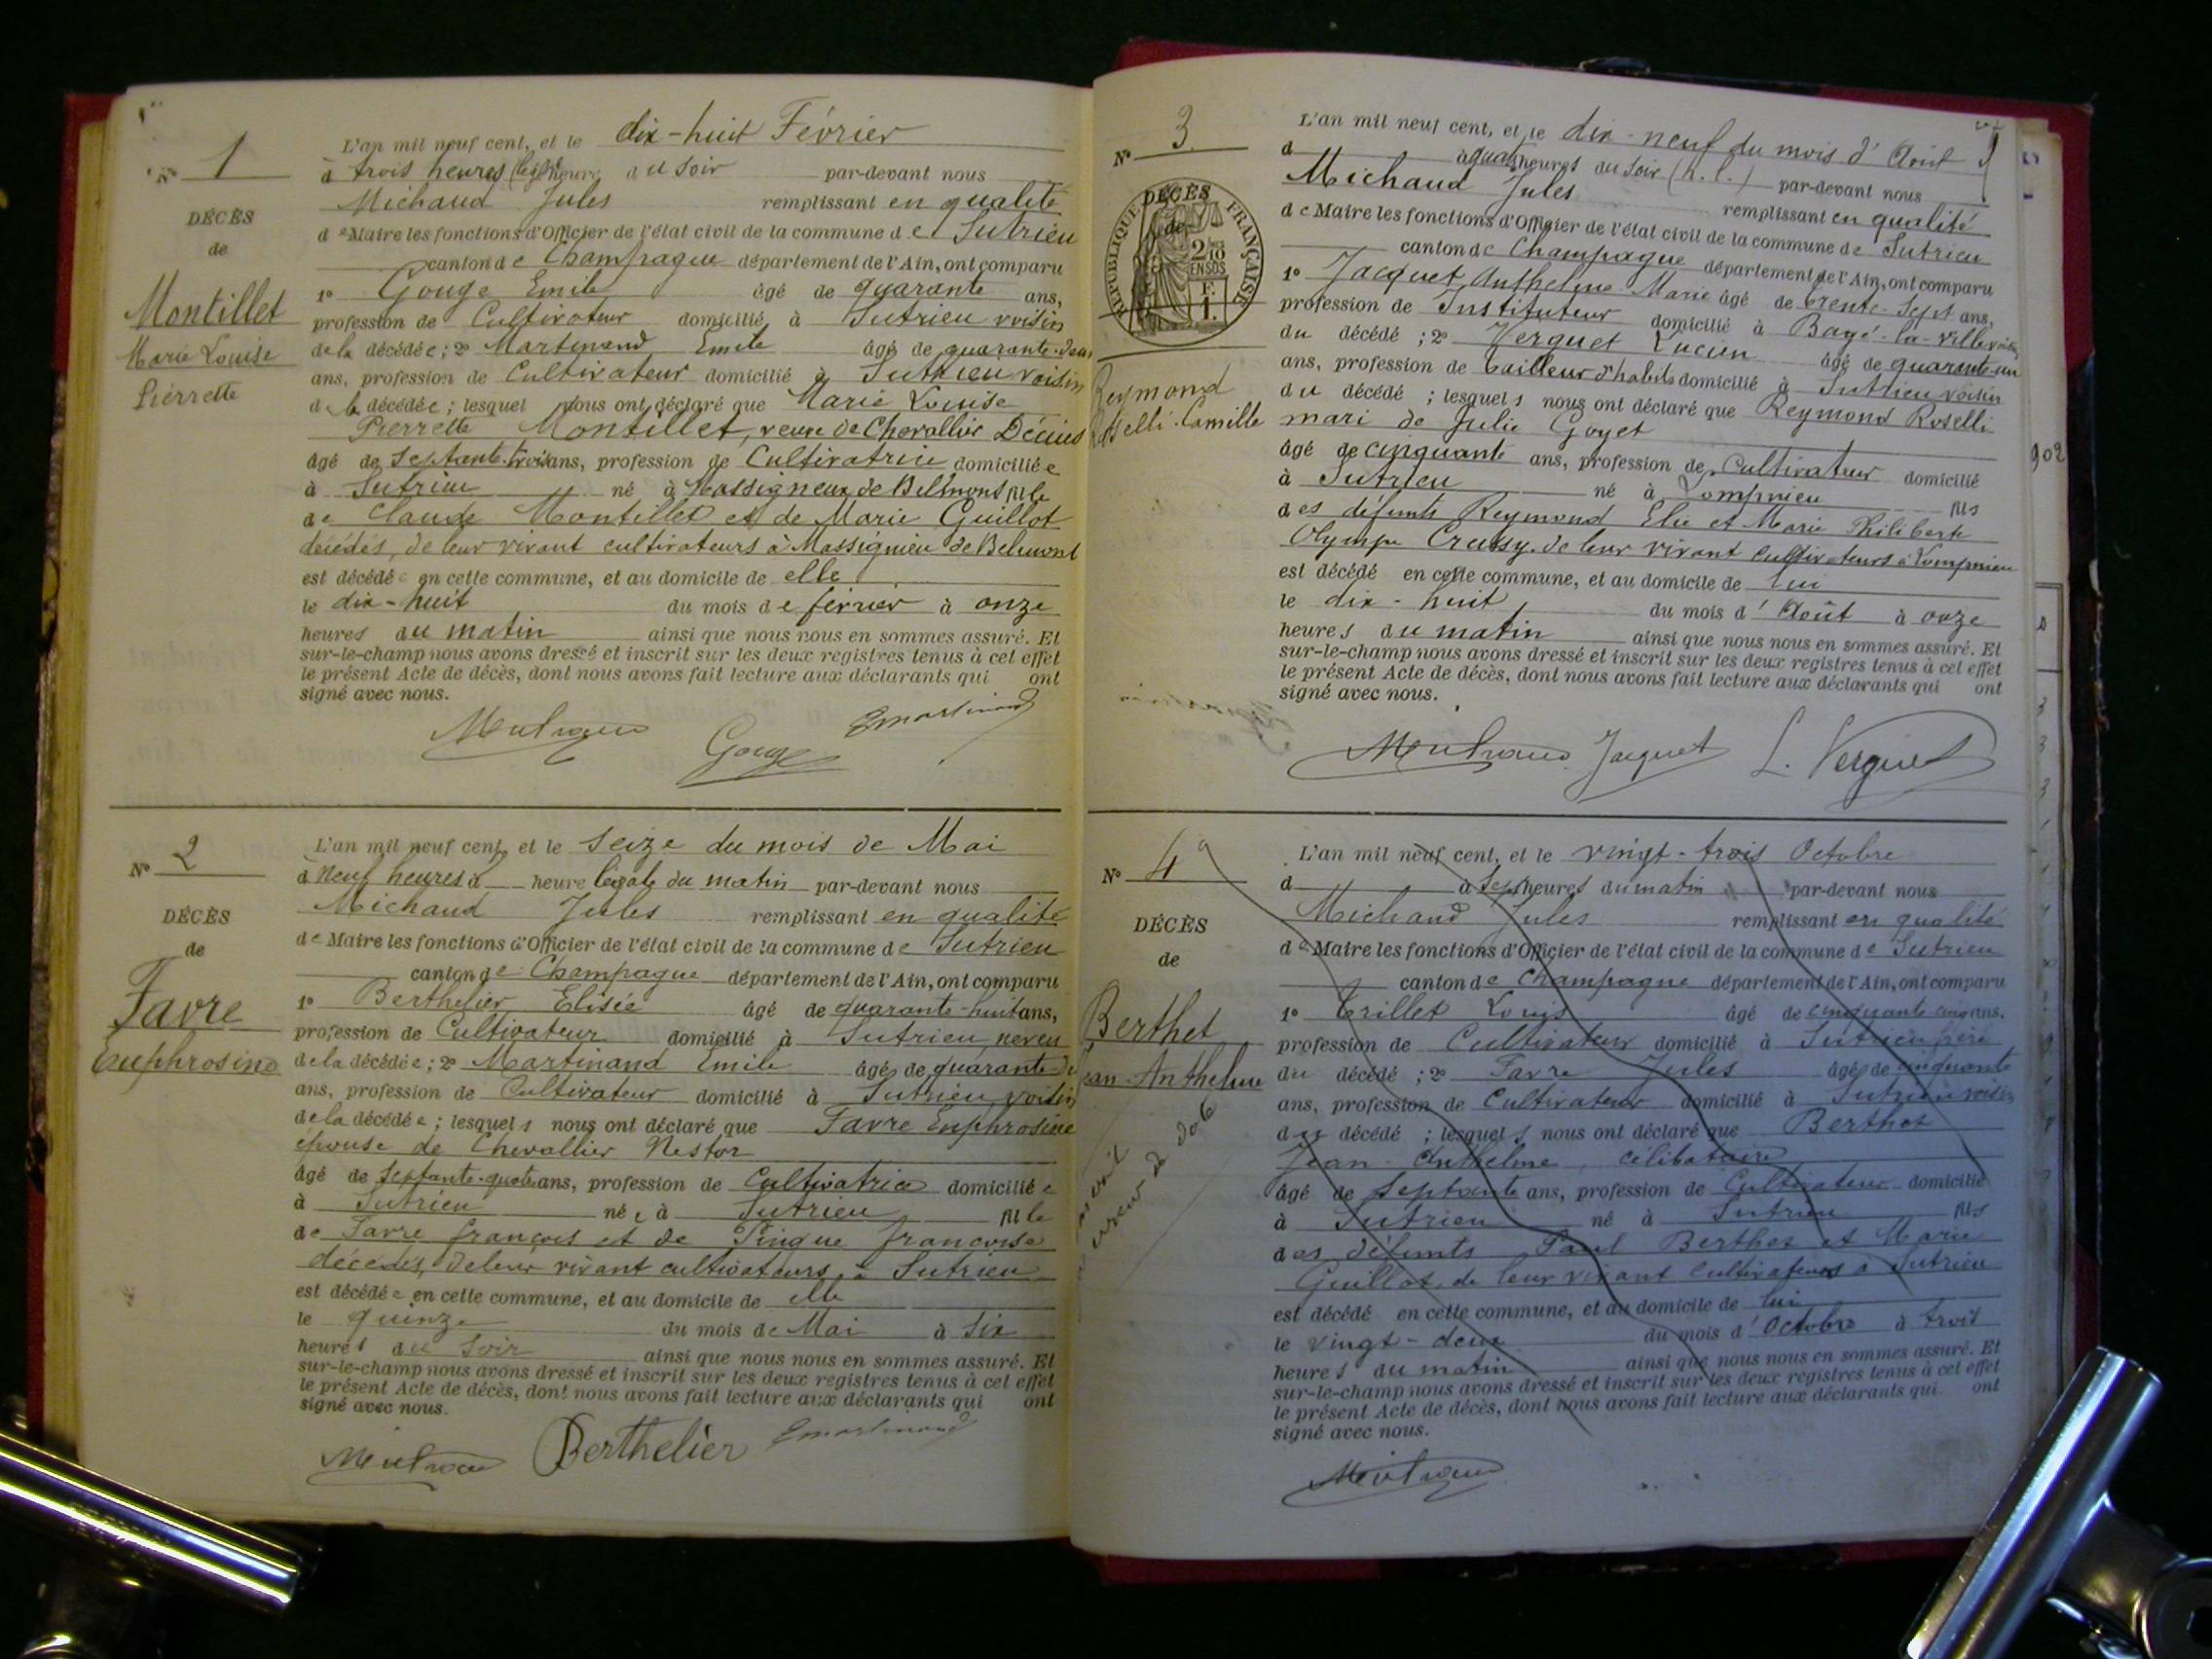 N° 1
DÉCÈS
de
Montillet
Marie Louise
Pierrette
L'an mil neuf cent, et le dix-huit Février
à trois heures du soir par-devant nous
Michaud Jules remplissant en qualité
de Maire les fonctions d'Officier de l'état civil de la commune de Sutrieu
canton de Champagne département de l'Ain, ont comparu
1° Gouge Emile âgé de quarante ans,
profession de Cultivateur domicilié à Sutrieu voisin
de la décédée ; 2° Martinand Emile âgé de quarante-deux
ans, profession de Cultivateur domicilié à Sutrieu voisin
de la décédée ; lesquel nous ont déclaré que Marie Louise
Pierrette Montillet, veuve de Chevallier Décius
âgé de septante-trois ans, profession de Cultivatrice domiciliée
à Sutrieu né à Massigneux de Belmont fille
de Claude Montillet et de Marie Guillot
décédés, de leur vivant cultivateurs à Massignieu de Belmont
est décédée en cette commune, et au domicile de elle
le dix-huit du mois de février à onze
heures du matin ainsi que nous nous en sommes assuré. Et
sur-le-champ nous avons dressé et inscrit sur les deux registres tenus à cet effet
le présent Acte de décès, dont nous avons fait lecture aux déclarants qui ont
signé avec nous.
Gouge EMartinand
N° 2
DÉCÈS
de
Favre
Euphrosine
L'an mil neuf cent, et le seize du mois de Mai
à Neuf heures à heure légale du matin par-devant nous
Michaud Jules remplissant en qualité
de Maire les fonctions d'Officier de l'état civil de la commune de Sutrieu
canton de Champagne département de l'Ain, ont comparu
1° Berthelier Elisée âgé de quarante-huit ans,
profession de Cultivateur domicilié à Sutrieu, neveu
de la décédée ; 2° Martinand Emile âgé de quarante
ans, profession de Cultivateur domicilié à Sutrieu voisin
de la décédée ; lesquels nous ont déclaré que Favre Euphrosine
épouse de Chevallier Nestor
âgé de septante-quatre ans, profession de Cultivatrice domiciliée
à Sutrieu née à Sutrieu fille
de Favre françois et de Pingue françoise
décédés, de leur vivant cultivateurs à Sutrieu
est décédée en cette commune, et au domicile de elle
le quinze du mois de Mai à six
heures du soir ainsi que nous nous en sommes assuré. Et
sur-le-champ nous avons dressé et inscrit sur les deux registres tenus à cet effet
le présent Acte de décès, dont nous avons fait lecture aux déclarants qui ont
signé avec nous.
Berthelier EMartinand
N° 3
DÉCÈS
de
RÉPUBLIQUE FRANÇAISE
2/10 EN SUS
F. 1.
Reymond
Roselli Camille
L'an mil neuf cent, et le dix-neuf du mois d'Août
à quatre heures du soir (h. l.) par-devant nous
Michaud Jules remplissant en qualité
de Maire les fonctions d'Officier de l'état civil de la commune de Sutrieu
canton de Champagne département de l'Ain, ont comparu
1° Jacquet Anthelme Marie âgé de trente-sept ans,
profession de Instituteur domicilié à Bagé-la-Ville voisin
du décédé ; 2° Verguet Lucien âgé de quarante-un
ans, profession de tailleur d'habits domicilié à Sutrieu voisin
du décédé ; lesquels nous ont déclaré que Reymond Roselli
mari de Julie Goyet
âgé de cinquante ans, profession de Cultivateur domicilié
à Sutrieu né à Lompnieu fils
des défunts Reymond Elie et Marie Philiberte
Olympe Crussy, de leur vivant cultivateurs à Lompnieu
est décédé en cette commune, et au domicile de lui
le dix-huit du mois d'Août à onze
heures du matin ainsi que nous nous en sommes assuré. Et
sur-le-champ nous avons dressé et inscrit sur les deux registres tenus à cet effet
le présent Acte de décès, dont nous avons fait lecture aux déclarants qui ont
signé avec nous.
Jacquet L. Verguet
902
N° 4
DÉCÈS
de
Berthet
Jean-Anthelme
erreur de date
L'an mil neuf cent, et le vingt-trois Octobre
à sept heures du matin par-devant nous
Michaud Jules remplissant en qualité
de Maire les fonctions d'Officier de l'état civil de la commune de Sutrieu
canton de Champagne département de l'Ain, ont comparu
1° Trillet Louis âgé de cinquante cinq ans,
profession de Cultivateur domicilié à Sutrieu
du décédé ; 2° Favre Jules âgé de cinquante
ans, profession de Cultivateur domicilié à Sutrieu voisin
du décédé ; lesquels nous ont déclaré que Berthet
Jean-Anthelme, célibataire
âgé de septante ans, profession de Cultivateur domicilié
à Sutrieu né à Sutrieu fils
des défunts Paul Berthet et Marie
Guillot, de leur vivant cultivateurs à Sutrieu
est décédé en cette commune, et au domicile de lui
le vingt-deux du mois d'Octobre à trois
heures du matin ainsi que nous nous en sommes assuré. Et
sur-le-champ nous avons dressé et inscrit sur les deux registres tenus à cet effet
le présent Acte de décès, dont nous avons fait lecture aux déclarants qui ont
signé avec nous.